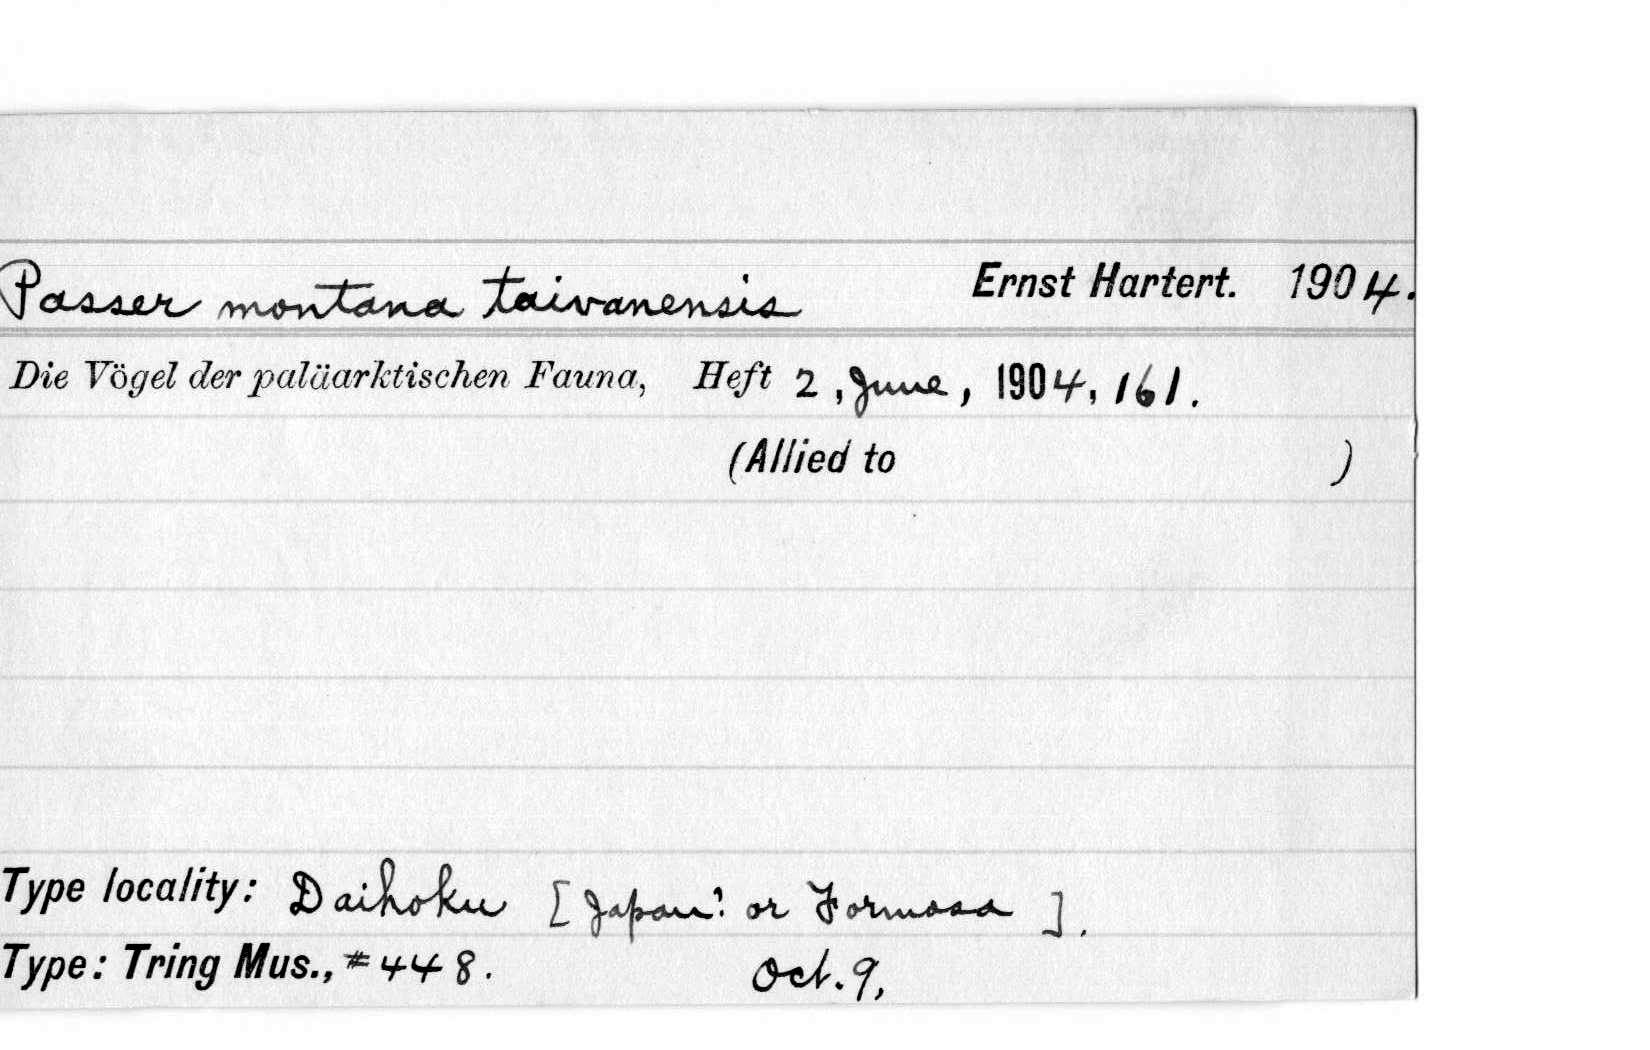 Passer montana taivanensis Ernst Hartert. 1904.
Die Vögel der paläarktischen Fauna, Heft 2, June, 1904, 161.
(Allied to )
Type locality: Daihoku [Japan? or Formosa ].
Type: Tring Mus., #448. Oct. 9,